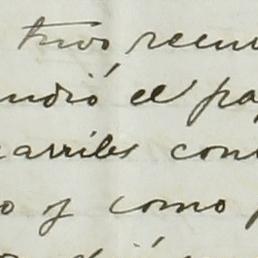 tuvo, recur
ndió el pa
carriles con
o y como p